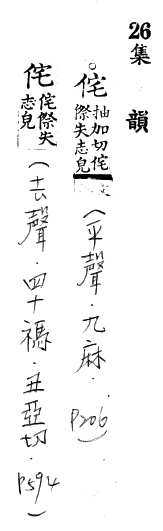 26集韻
侘抽加切侘傺失志皃文(平聲．九麻．P206)
侘侘傺失志皃(去聲．四十禡．丑亞切．P594)